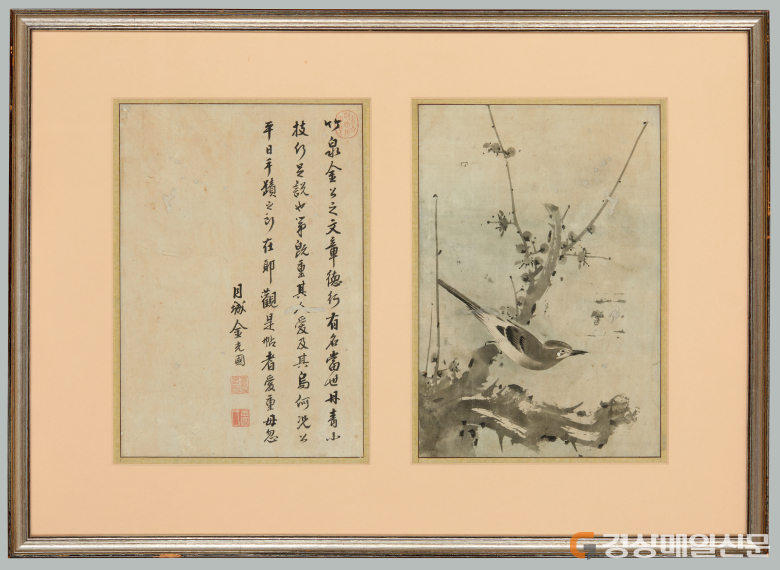 竹泉金公之文章德行有名當世丹青小
技何足說也第旣重其人愛及其烏何況公
平日手蹟之所在耶觀是帖者愛重毋忽
月城金光國
경상매일신문